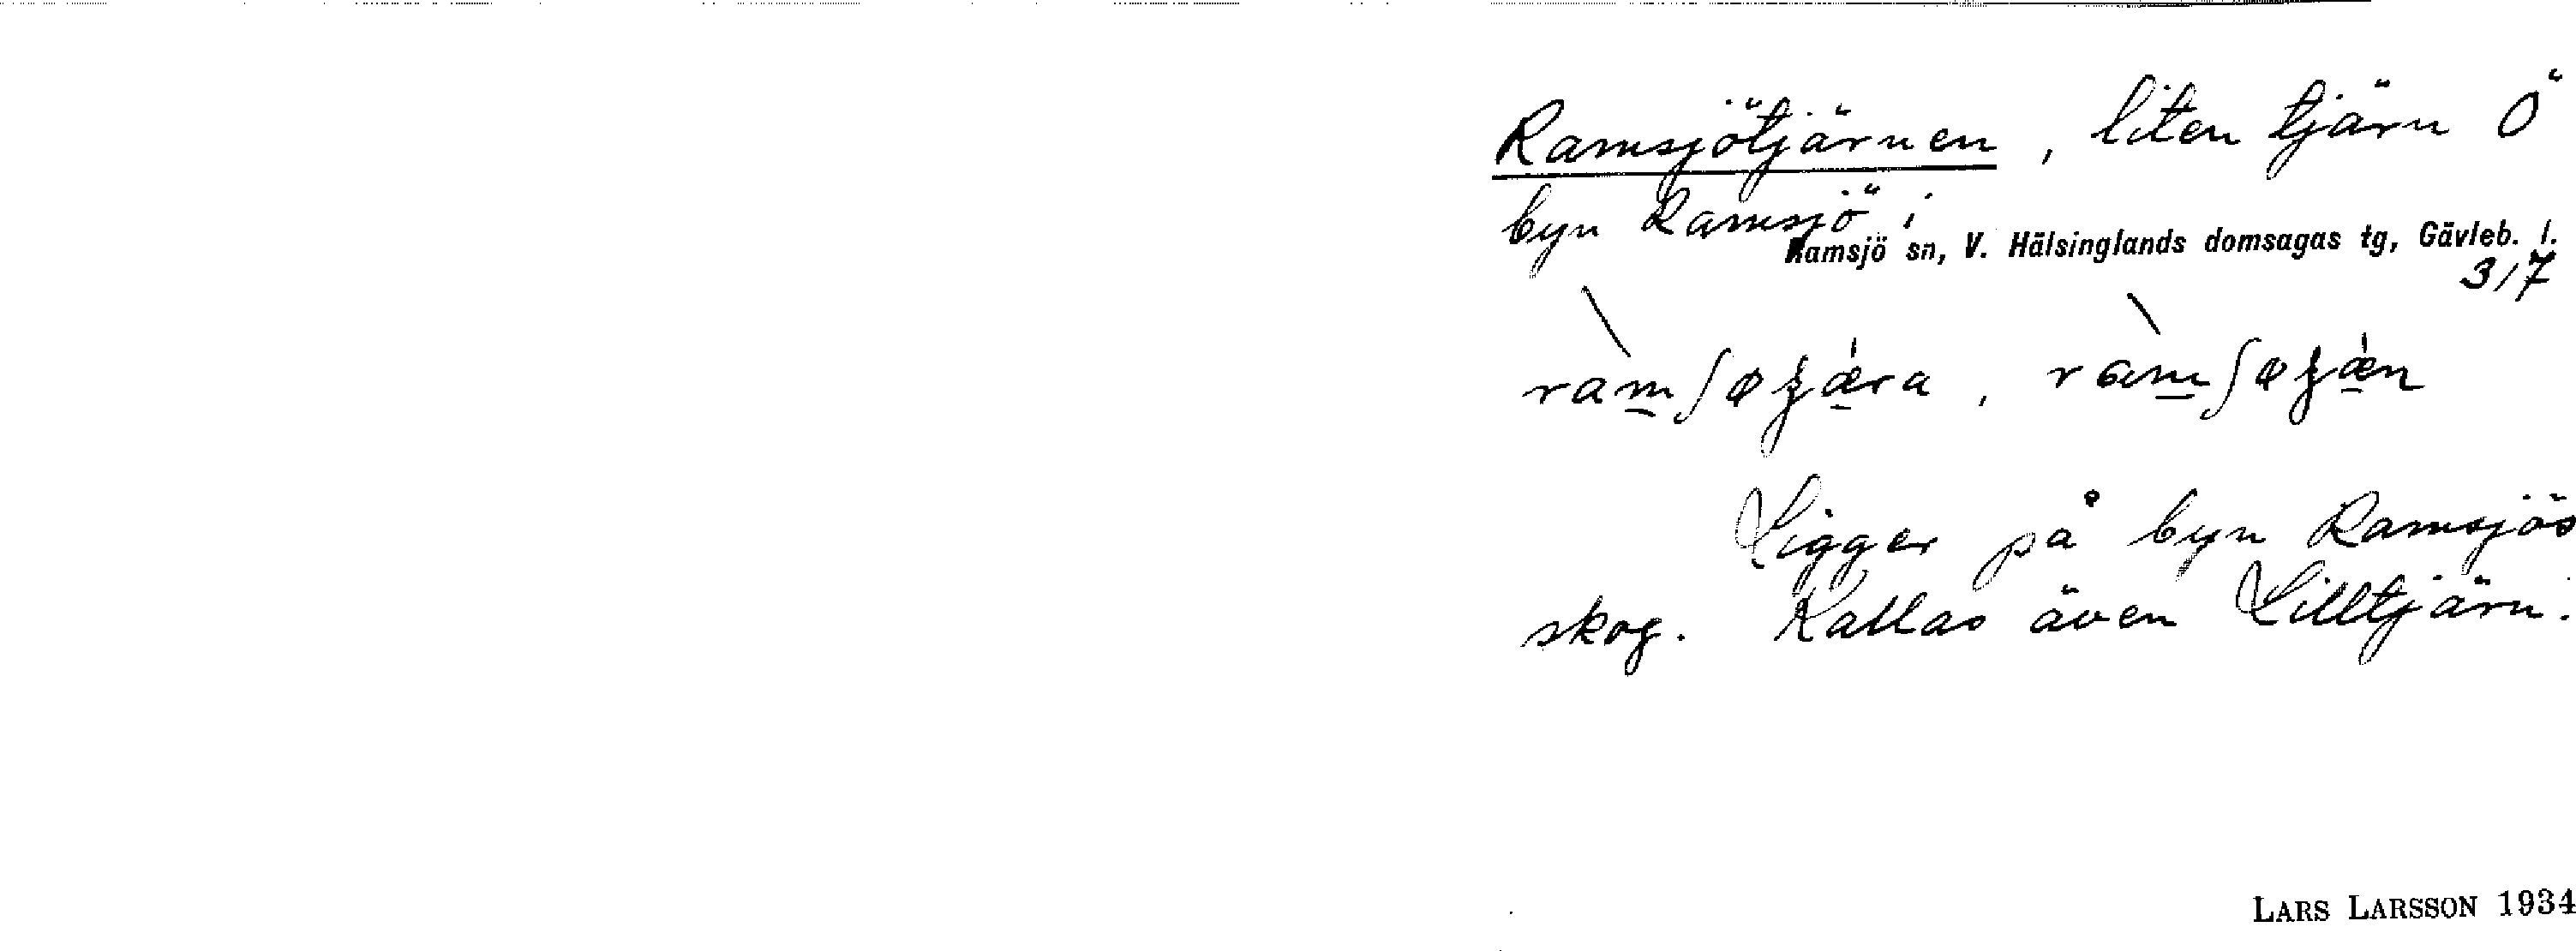 Ramsjötjärnen, liten tjärn Ö
byn Ramsjö i
Ramsjö sn, V. Hälsinglands domsagas tg, Gävleb. l.
3/7
Ligger på byn Ramsjös
skog. Kallas även Lilltjärn.
LARS LARSSON 1934